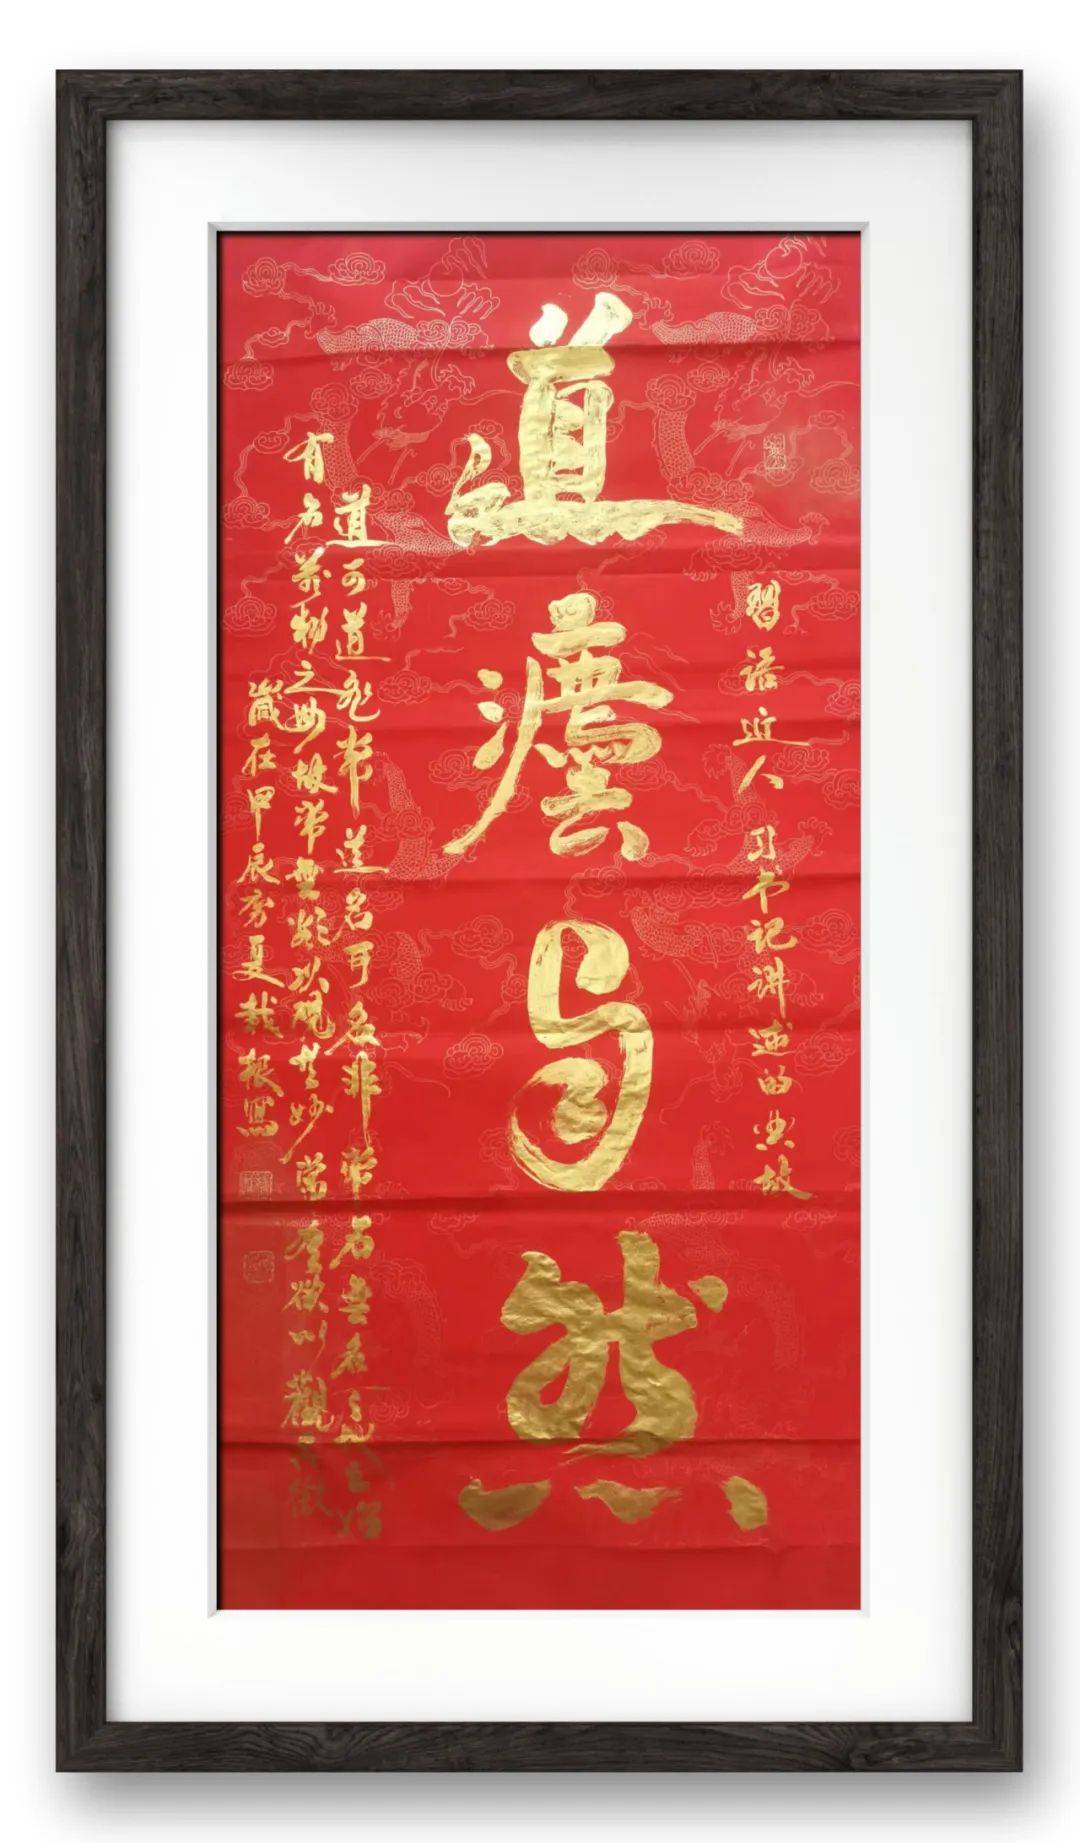 習语近人 习书记讲述的典故
道灋自然
道可道非常道名可名非常名無名之始
有名萬物之毋故常無欲以观其妙常有欲以觀其徼
歲在甲辰夏根寫